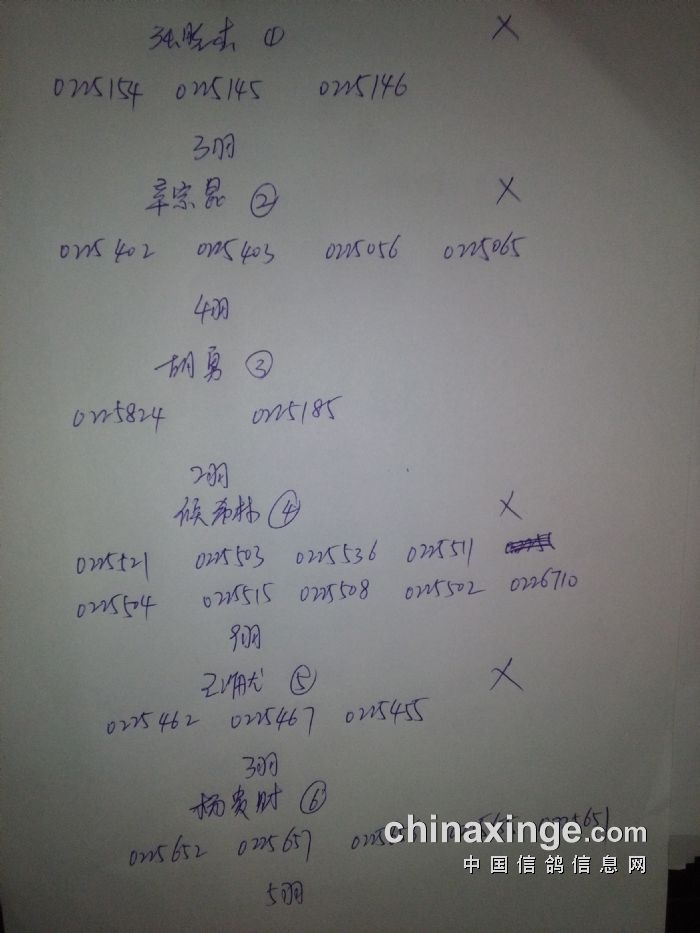 ①
0225154 0225145 0225146
3羽
辛宗昆 ②
0225402 0225403 0225056 0225065
4羽
胡勇 ③
0225824 0225185
2羽
侯希林 ④
0225521 0225503 0225536 0225511
0225504 0225515 0225508 0225502 0226710
9羽
⑤
0225462 0225467 0225455
3羽
杨贵财 ⑥
0225652 0225657 0225651
chinaxinge.com
中国信鸽信息网
5羽